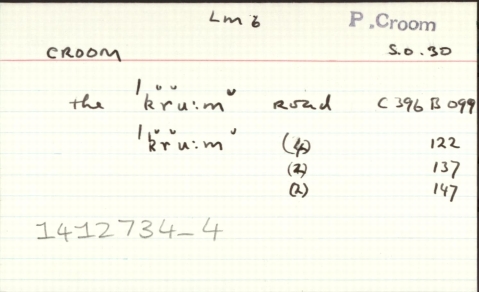 Lm 6 P.Croom
CROOM S.O.30
the ˈkru:m road C 396 B 099
ˈkru:m (4) 122
(2) 137
(2) 147
1412734_4